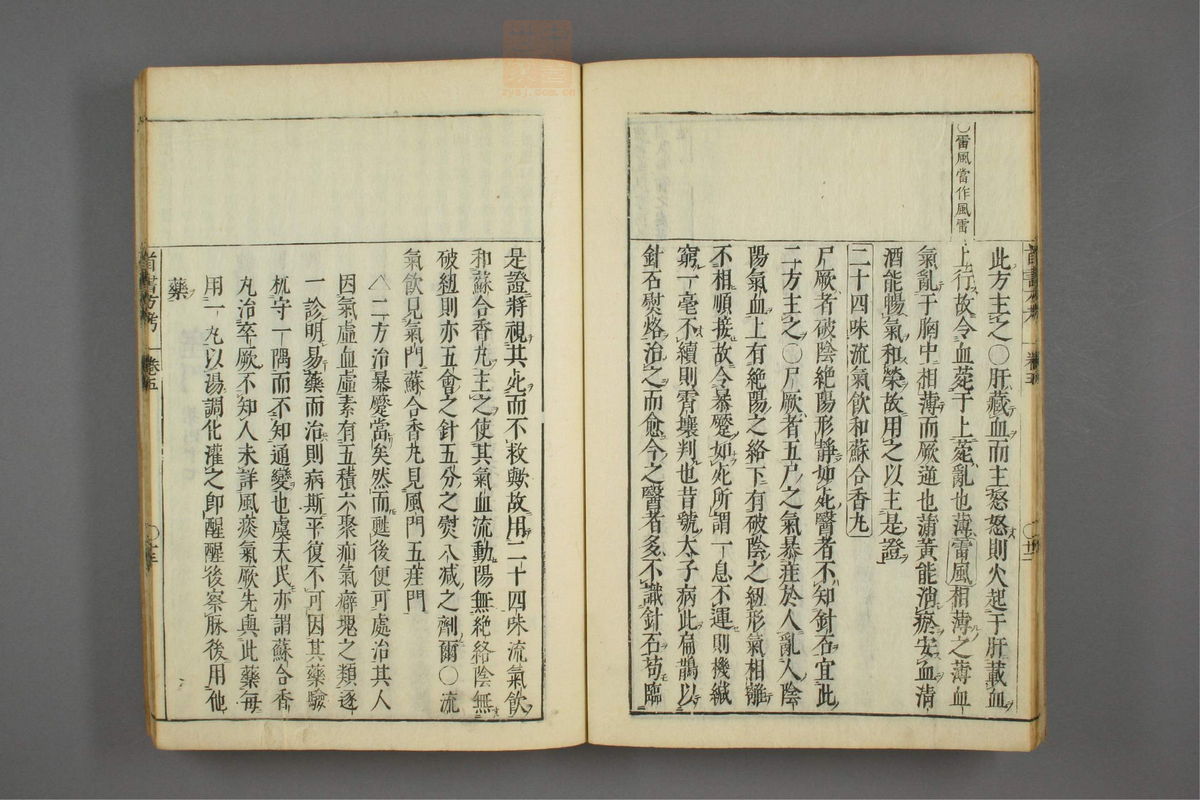 ○雷風當作風雷
此方主之○肝藏血而主怒怒則火起于肝載血
上行故令血菀于上菀亂也薄雷風相薄之薄血
氣亂于胸中相薄而厥逆也蒲黃能消瘀安血清
酒能暢氣和榮故用之以主是證
二十四味流氣飲和蘇合香丸
尸厥者破陰絕陽形靜如死醫者不知針石宜此
二方主之○尸厥者五尸之氣暴疰於人亂人陰
陽氣血上有絕陽之絡下有破陰之紐形氣相離
不相順接故令暴蹷如死所謂一息不運則機緘
窮一毫不續則霄壤判也昔虢太子病此扁鵲以
針石熨烙治之而愈今之醫者多不識針石苟臨
是證將視其死而不救歟故用二十四味流氣飲
和蘇合香丸主之使其氣血流動陽無絕絡陰無
破紐則亦五會之針五分之熨八减之劑爾○流
氣飲見氣門蘇合香丸見風門五疰門
△二方治暴蹷當矣然而甦後便可處治其人
因氣虛血虛素有五積六聚疝氣癖塊之類逐
一診明易藥而治則病斯平復不可因其藥驗
枕守一隅而不知通變也虞天民亦謂蘇合香
丸治卒厥不知人未詳風痰氣厥先與此藥每
用一丸以湯調化灌之即醒醒後察脉後用他
藥
首書方考
卷五